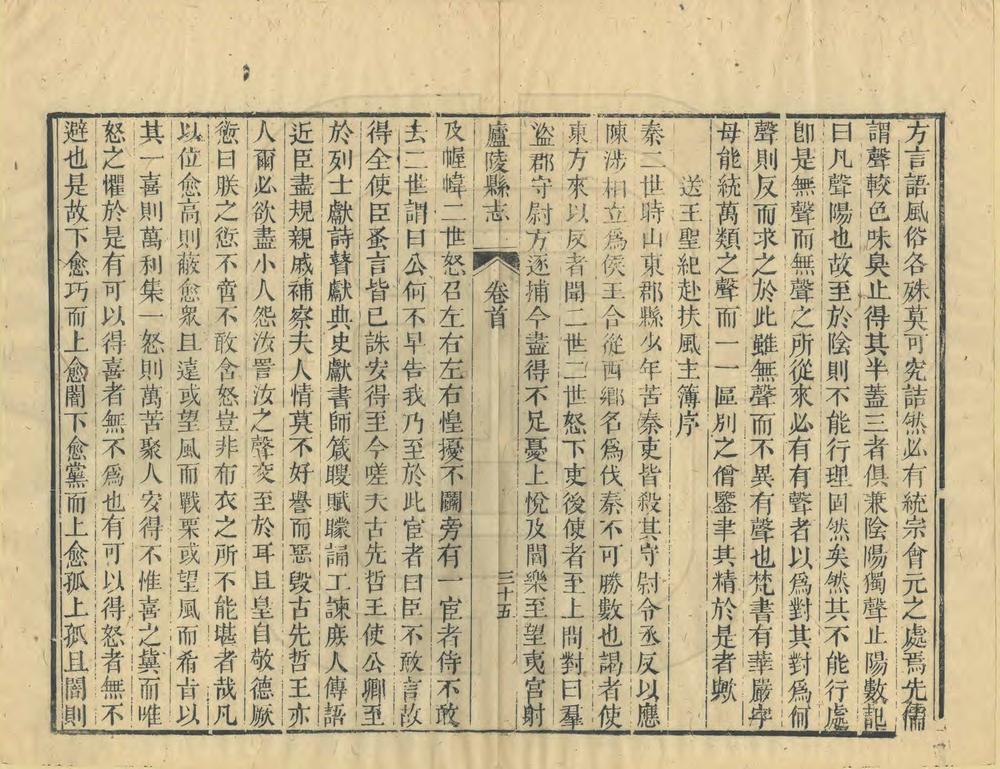 方言語風俗各殊莫可究詰然必有統宗會元之處焉先儒
謂聲較色味臭止得其半蓋三者俱兼陰陽獨聲止陽數記
曰凡聲陽也故至於陰則不能行理固然矣然其不能行處
卽是無聲而無聲之所從來必有有聲者以爲對其對爲何
聲則反而求之於此雖無聲而不異有聲也梵書有華嚴字
母能統萬類之聲而一一區別之僧鑒聿其精於是者歟
送王聖紀赴扶風主簿序
秦二世時山東郡縣少年苦秦吏皆殺其守尉令丞反以應
陳涉相立爲侯王合從西鄉名爲伐秦不可勝數也謁者使
東方來以反者聞二世二世怒下吏後使者至上問對曰羣
盜郡守尉方逐捕今盡得不足憂上悅及閻樂至望夷宮射
廬陵縣志 卷首 三十五
及幄幃二世怒召左右左右惶擾不鬭旁有一宦者侍不敢
去二世謂曰公何不早告我乃至於此宦者曰臣不敢言故
得全使臣蚤言皆已誅安得至今嗟夫古先哲王使公卿至
於列士獻詩瞽獻典史獻書師箴瞍賦矇誦工諫庶人傳語
近臣盡規親戚補察夫人情莫不好譽而惡毀古先哲王亦
人爾必欲盡小人怨汝詈汝之聲交至於耳且皇自敬德厥
愆曰朕之愆不啻不敢含怒豈非布衣之所不能堪者哉凡
以位愈高則蔽愈衆且遠或望風而戰栗或望風而希旨以
其一喜則萬利集一怒則萬苦聚人安得不惟喜之冀而唯
怒之懼於是有可以得喜者無不爲也有可以得怒者無不
避也是故下愈巧而上愈闇下愈黨而上愈孤上孤且闇則